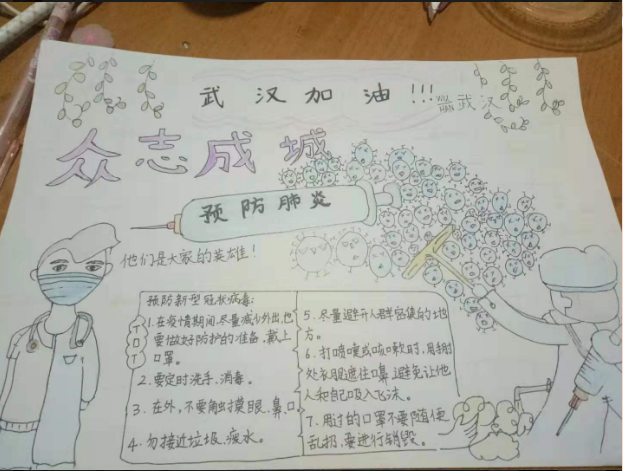 武汉加油!!!
武汉
众志成城
预防肺炎
他们是大家的英雄!
预防新型冠状病毒:
1.在疫情期间,尽量减少外出,也
要做好防护的准备,戴上
口罩。
2.要定时洗手、消毒。
3.在外,不要触摸眼、鼻、口
4.勿接近垃圾、废水。
5.尽量避开人群密集的地
方。
6.打喷嚏或咳嗽时,用手肘
处衣服遮住口鼻,避免让他
人和自己吸入飞沫。
7.用过的口罩不要随便
乱扔,要进行销毁。